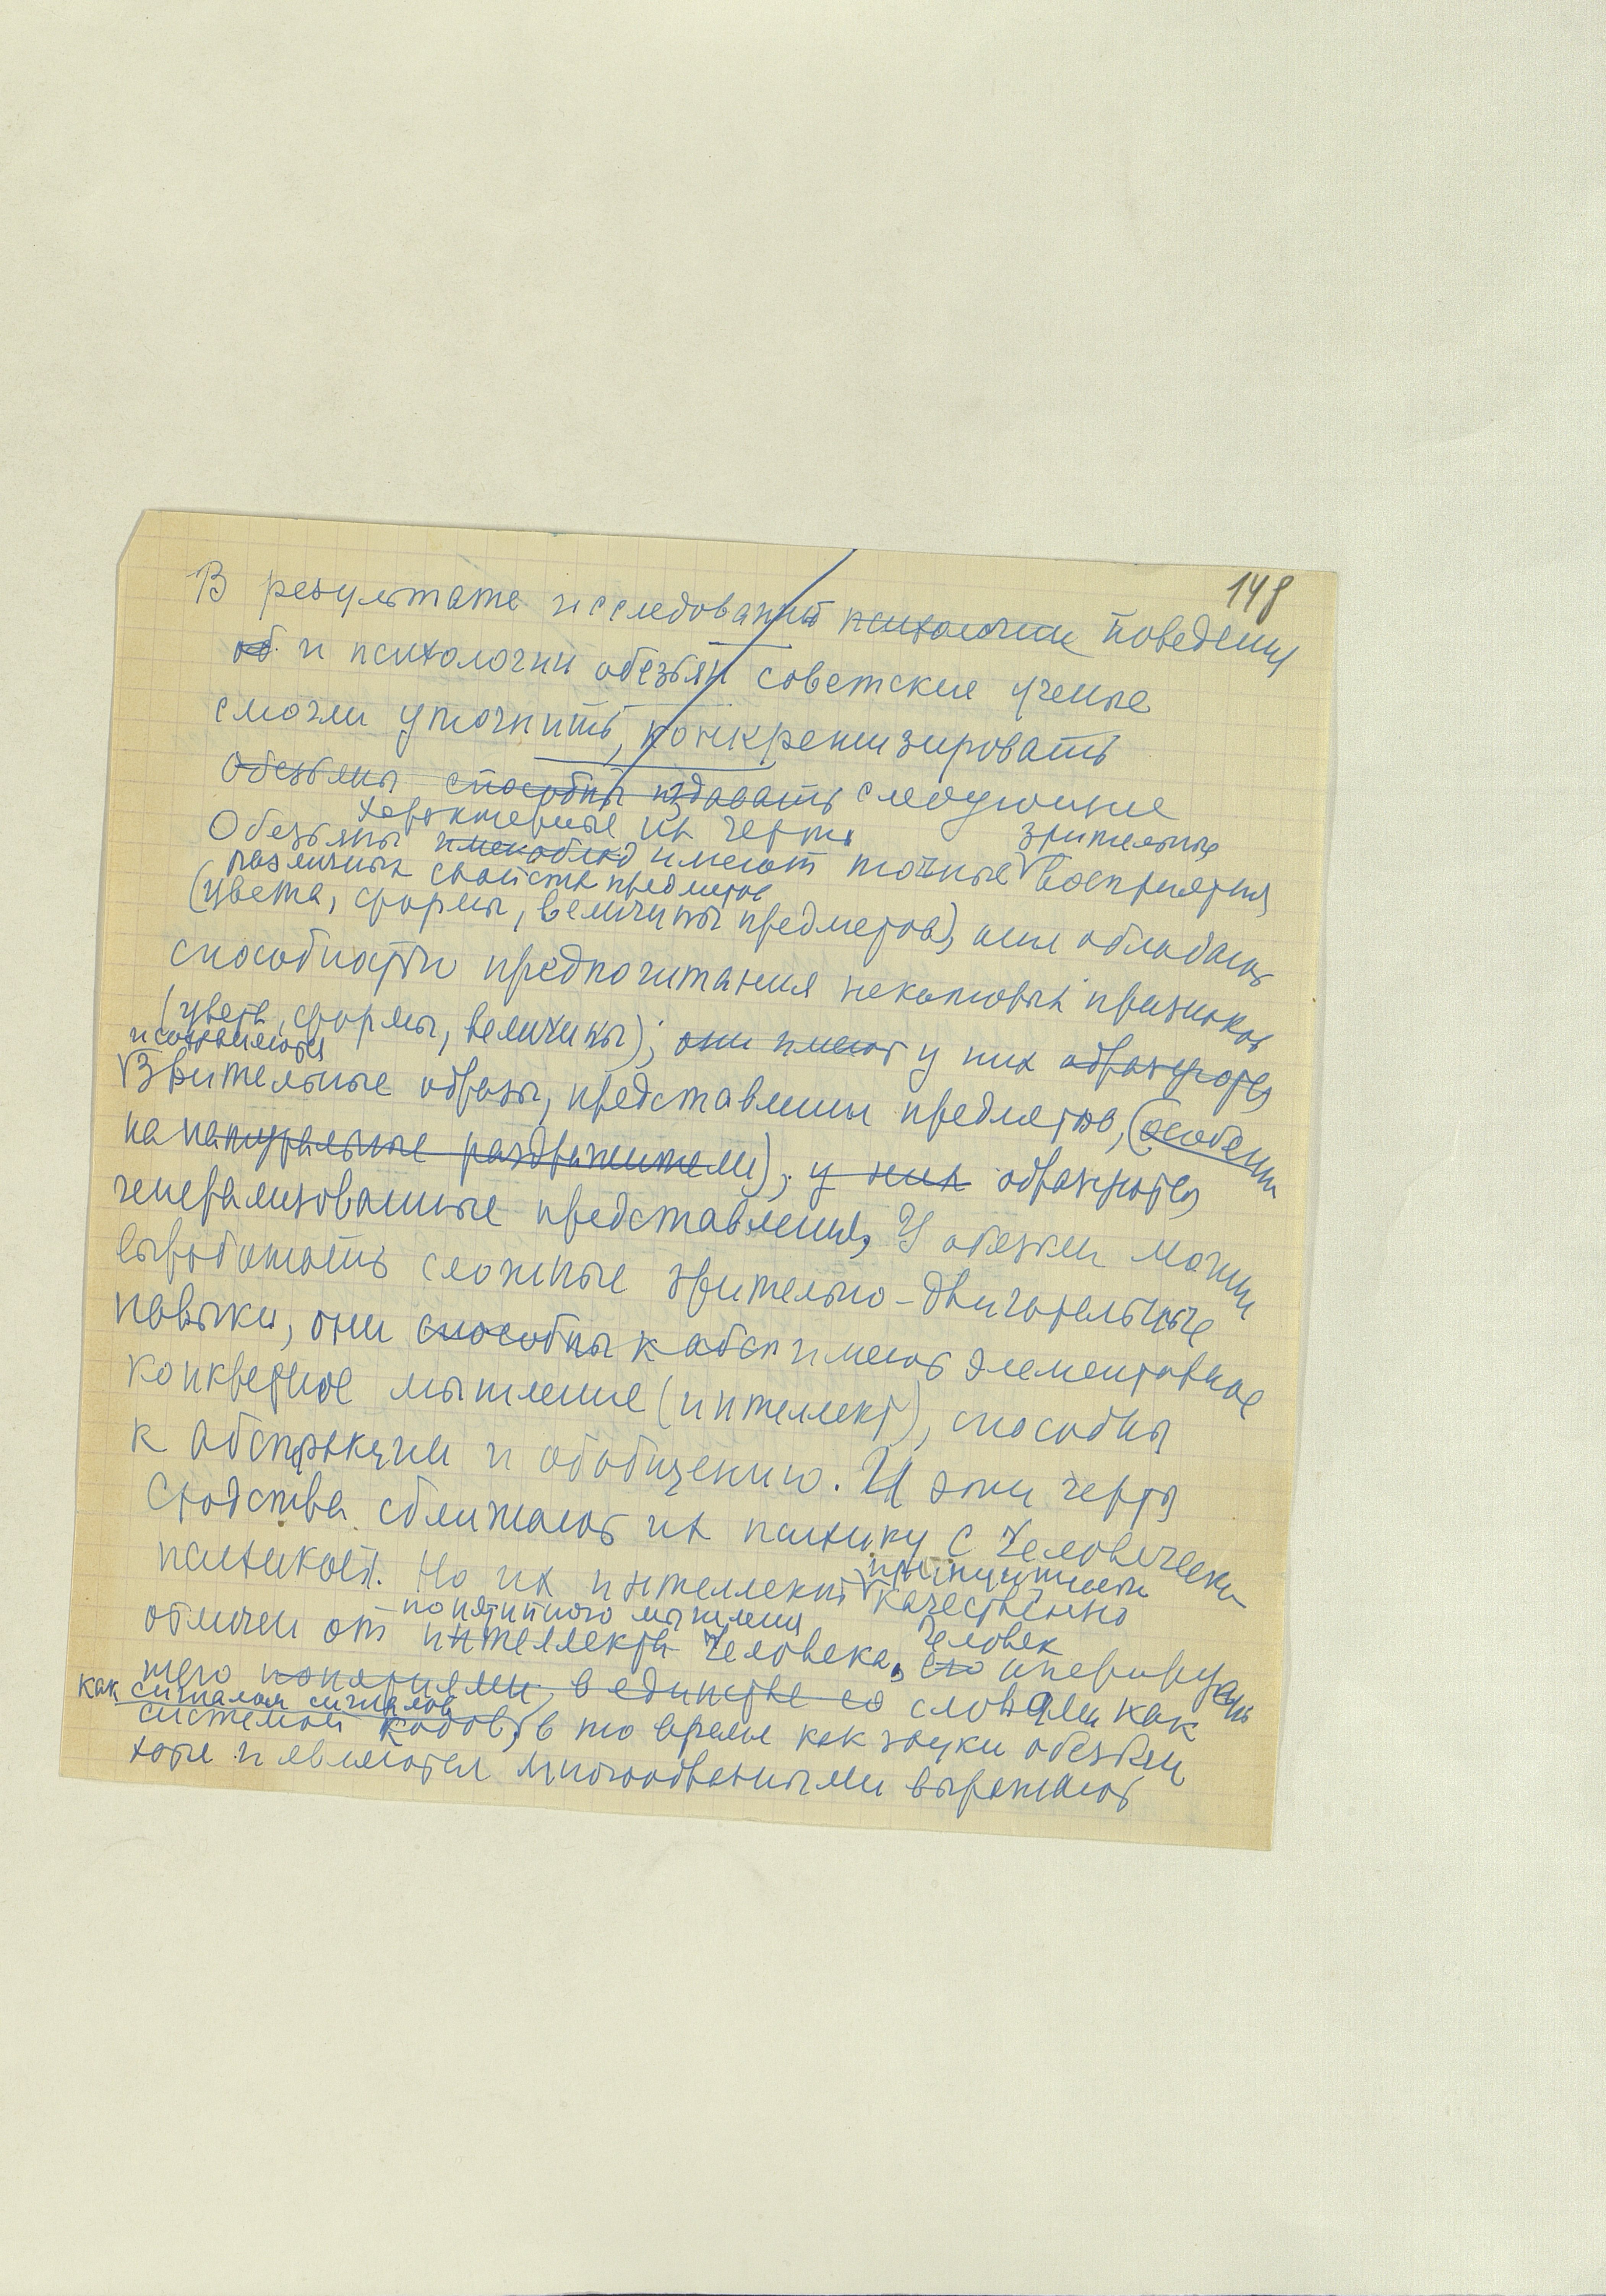 148
В результате исследований психологии поведения
об и психологии обезьян советские ученые
смогли уточнить, конкретизировать
Обезьяны способны издавать следующие
характерные их черты
Обезьяны имеют точные зрительные восприятия
различных свойств предметов
(цвета, формы, величины предметов), они обладают
способностью предпочитания некоторых признаков
(цвета, формы, величины); они имеют у них образуются
и сохраняются
Зрительные образы, представления предметов, (особенно
на натуральные раздражители); у них образуются
генерализованные представления, У обезьян можно
выработать сложные зрительно-двигательные
навыки, они способны к абст имеют элементарное
конкретное мышление (интеллект), способны
к абстракции и обобщению. И эти черты
сходства сближают их психику с человеческой
психикой. Но их интеллект принципиально
качественно
понятийного мышления
отличен от интеллекта человека, его человек оперирую
щего понятиями, в единстве со словами как
как сигналом сигналов
системой кодов, в то время как звуки обезьян
хотя и являются многообразными выражают